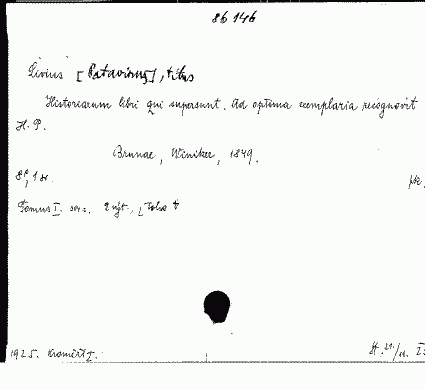 86 146
Livius [Patavinus], Titus
Historiarum libri qui supersunt. Ad optima exemplaria recognovit
H. P.
Brunae, Winiker, 1849.
8°, 1 sv.
Tomus I.
1925. Kroměříž